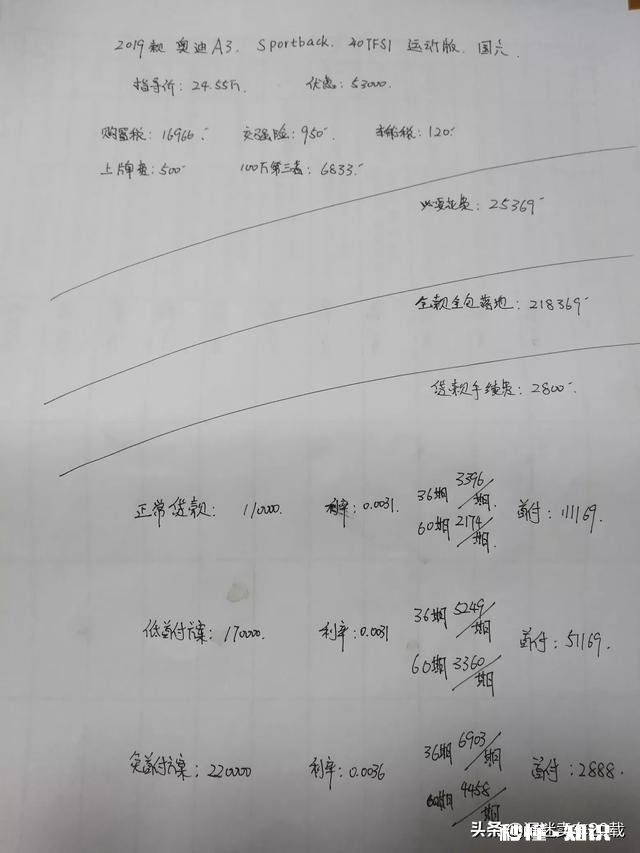 2019款 奥迪A3. Sportback. 40TFSI 运动版. 国六.
指导价: 24.55万. 优惠: 53000.
购置税: 16966. 交强险: 950. 车船税: 120.
上牌费: 500. 100万第三者: 6833.
必要花费: 25369
全款全包落地: 218369
贷款手续费: 2800.
正常贷款: 110000. 利率: 0.0031. 36期 3396/期. 首付: 111169.
60期 2174/期.
低首付方案: 170000. 利率: 0.0031 36期 5249/期 首付: 51169.
60期 3360/期
负首付方案: 220000 利率: 0.0036 36期 6903/期 首付: 2888.
60期 4458/期
秒懂-知识
头条
载